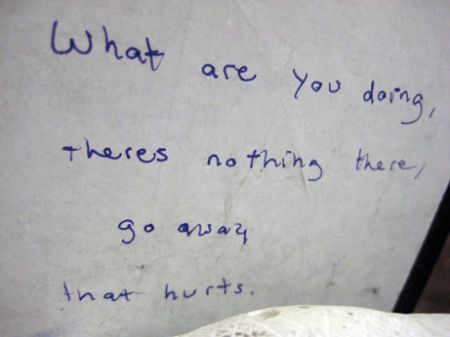 What are you doing,
theres nothing there,
go away
that hurts.